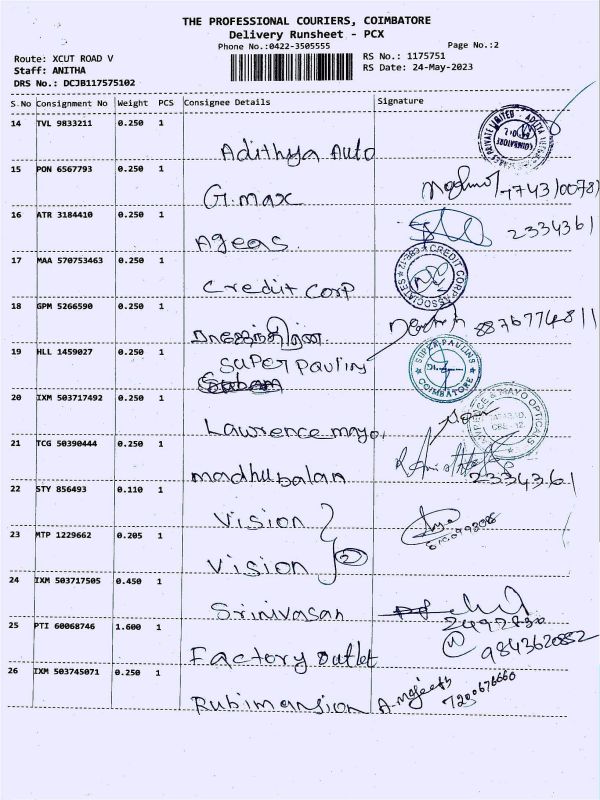 THE PROFESSIONAL COURIERS, COIMBATORE
Delivery Runsheet - PCX
Phone No.:0422-3505555 Page No.:2
Route: XCUT ROAD V RS No.: 1175751
Staff: ANITHA RS Date: 24-May-2023
DRS No.: DCJB117575102
S.No Consignment No Weight PCS Consignee Details Signature
14 TVL 9833211 0.250 1 Adithya Auto
15 PON 6567793 0.250 1 G.max
16 ATR 3184410 0.250 1 Ageas 2334361
17 MAA 570753463 0.250 1 Credit Corp CREDIT CORP ASSOCIATES
18 GPM 5266590 0.250 1 ராஜேந்திரன் 8876774811
19 HLL 1459027 0.250 1 Super Paulins SUPER PAULINS COIMBATORE
20 IXM 503717492 0.250 1 Lawrence mayo & MAYO OPTICALS
21 TCG 50390444 0.250 1 madhubalan 2334361
22 STY 856493 0.110 1 Vision
23 MTP 1229662 0.205 1 Vision 2
24 IXM 503717505 0.450 1 Srinivasan
25 PTI 60068746 1.600 1 Factory outlet 9843620852
26 IXM 503745071 0.250 1 Rubimansion 7200676660